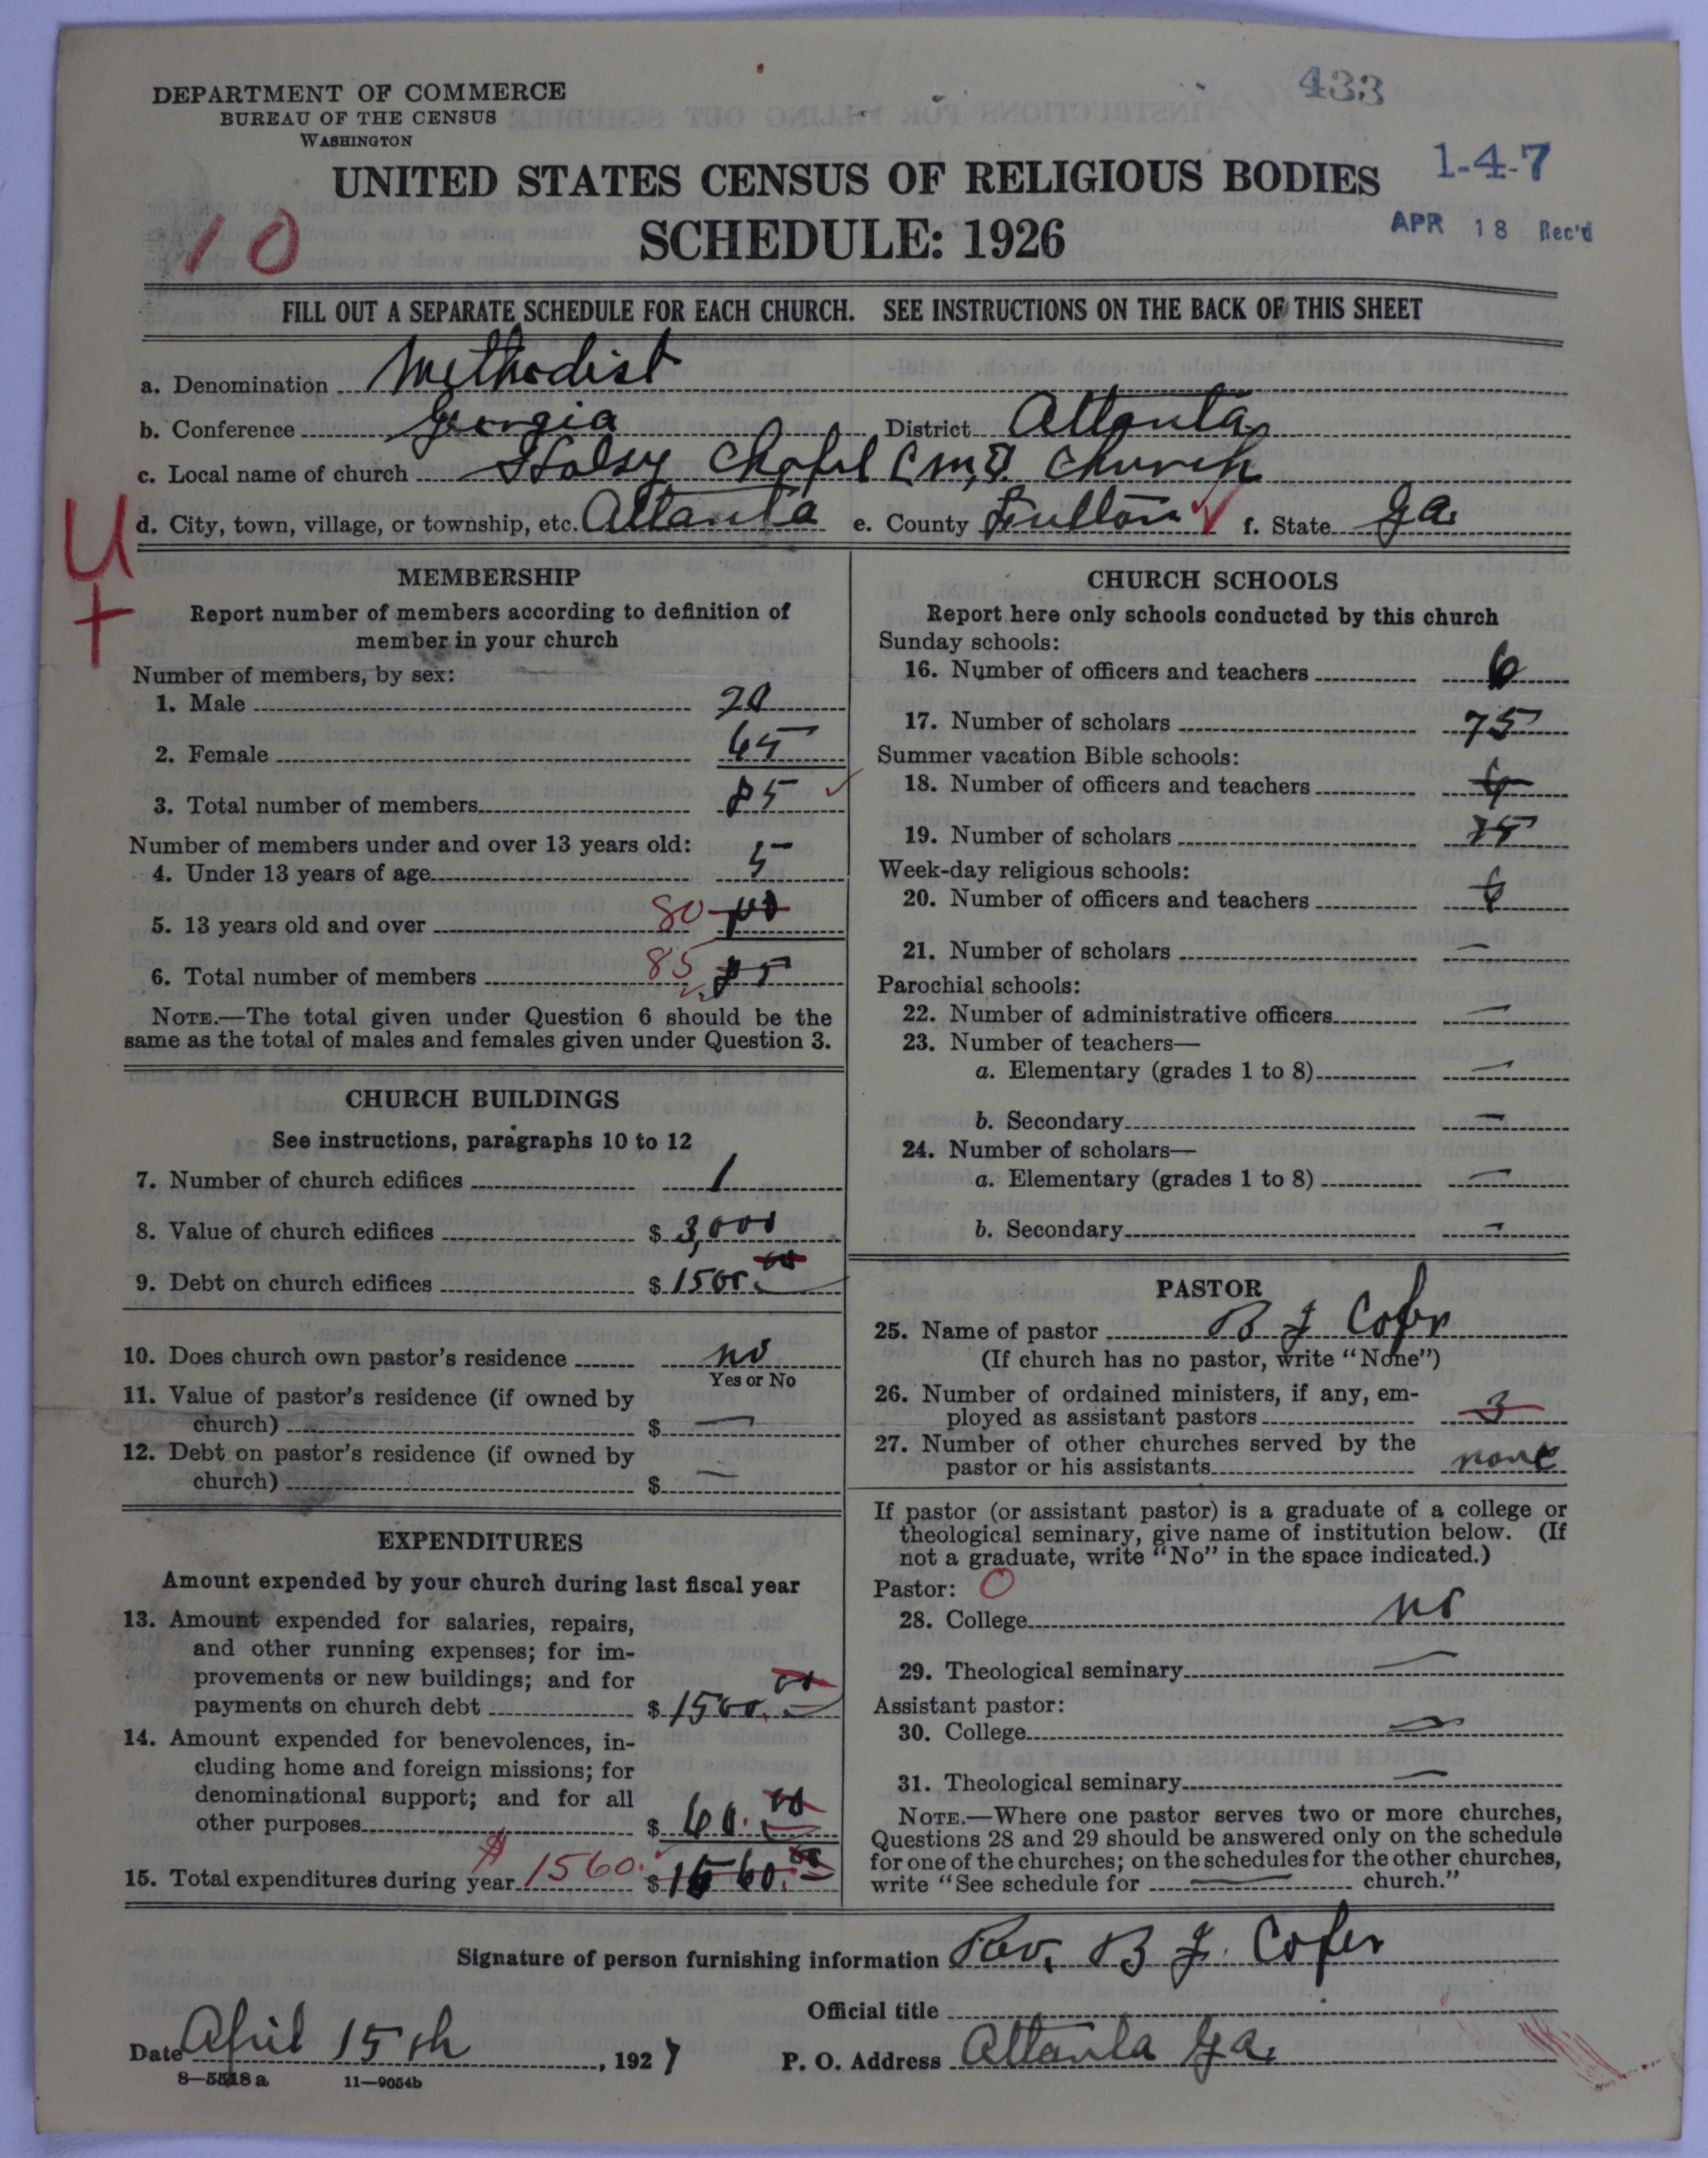 433
DEPARTMENT OF COMMERCE
BUREAU OF THE CENSUS
WASHINGTON
1-4-7
UNITED STATES CENSUS OF RELIGIOUS BODIES
SCHEDULE: 1926
APR 18 Rec'd
10
FILL OUT A SEPARATE SCHEDULE FOR EACH CHURCH. SEE INSTRUCTIONS ON THE BACK OF THIS SHEET
a. Denomination Methodist
b. Conference Georgia District Atlanta
c. Local name of church Holsy Chapel C.M.E. Church
d. City, town, village, or township, etc. Atlanta e. County Fulton f. State Ga.
U
+
MEMBERSHIP
Report number of members according to definition of
member in your church
Number of members, by sex:
1. Male 20
2. Female 65
3. Total number of members 85
Number of members under and over 13 years old:
4. Under 13 years of age 5
5. 13 years old and over 80
6. Total number of members 85 85
NOTE.—The total given under Question 6 should be the
same as the total of males and females given under Question 3.
CHURCH BUILDINGS
See instructions, paragraphs 10 to 12
7. Number of church edifices 1
8. Value of church edifices $ 3,000
9. Debt on church edifices $ 1500.00
10. Does church own pastor's residence no
Yes or No
11. Value of pastor's residence (if owned by
church) $ —
12. Debt on pastor's residence (if owned by
church) $ —
EXPENDITURES
Amount expended by your church during last fiscal year
13. Amount expended for salaries, repairs,
and other running expenses; for im-
provements or new buildings; and for
payments on church debt $ 1500.00
14. Amount expended for benevolences, in-
cluding home and foreign missions; for
denominational support; and for all
other purposes $ 60.00
15. Total expenditures during year $ 1560. $ 1560.00
CHURCH SCHOOLS
Report here only schools conducted by this church
Sunday schools:
16. Number of officers and teachers 6
17. Number of scholars 75
Summer vacation Bible schools:
18. Number of officers and teachers 6
19. Number of scholars 75
Week-day religious schools:
20. Number of officers and teachers 6
21. Number of scholars —
Parochial schools:
22. Number of administrative officers —
23. Number of teachers—
a. Elementary (grades 1 to 8) —
b. Secondary —
24. Number of scholars—
a. Elementary (grades 1 to 8) —
b. Secondary —
PASTOR
25. Name of pastor B J Cofer
(If church has no pastor, write "None")
26. Number of ordained ministers, if any, em-
ployed as assistant pastors 3
27. Number of other churches served by the
pastor or his assistants none
If pastor (or assistant pastor) is a graduate of a college or
theological seminary, give name of institution below. (If
not a graduate, write "No" in the space indicated.)
Pastor: O
28. College no
29. Theological seminary —
Assistant pastor:
30. College —
31. Theological seminary —
NOTE.—Where one pastor serves two or more churches,
Questions 28 and 29 should be answered only on the schedule
for one of the churches; on the schedules for the other churches,
write "See schedule for — church."
Signature of person furnishing information Rev. B J. Cofer
Official title
Date April 15th, 1927 P. O. Address Atlanta Ga.
8—5518 a 11—9054b